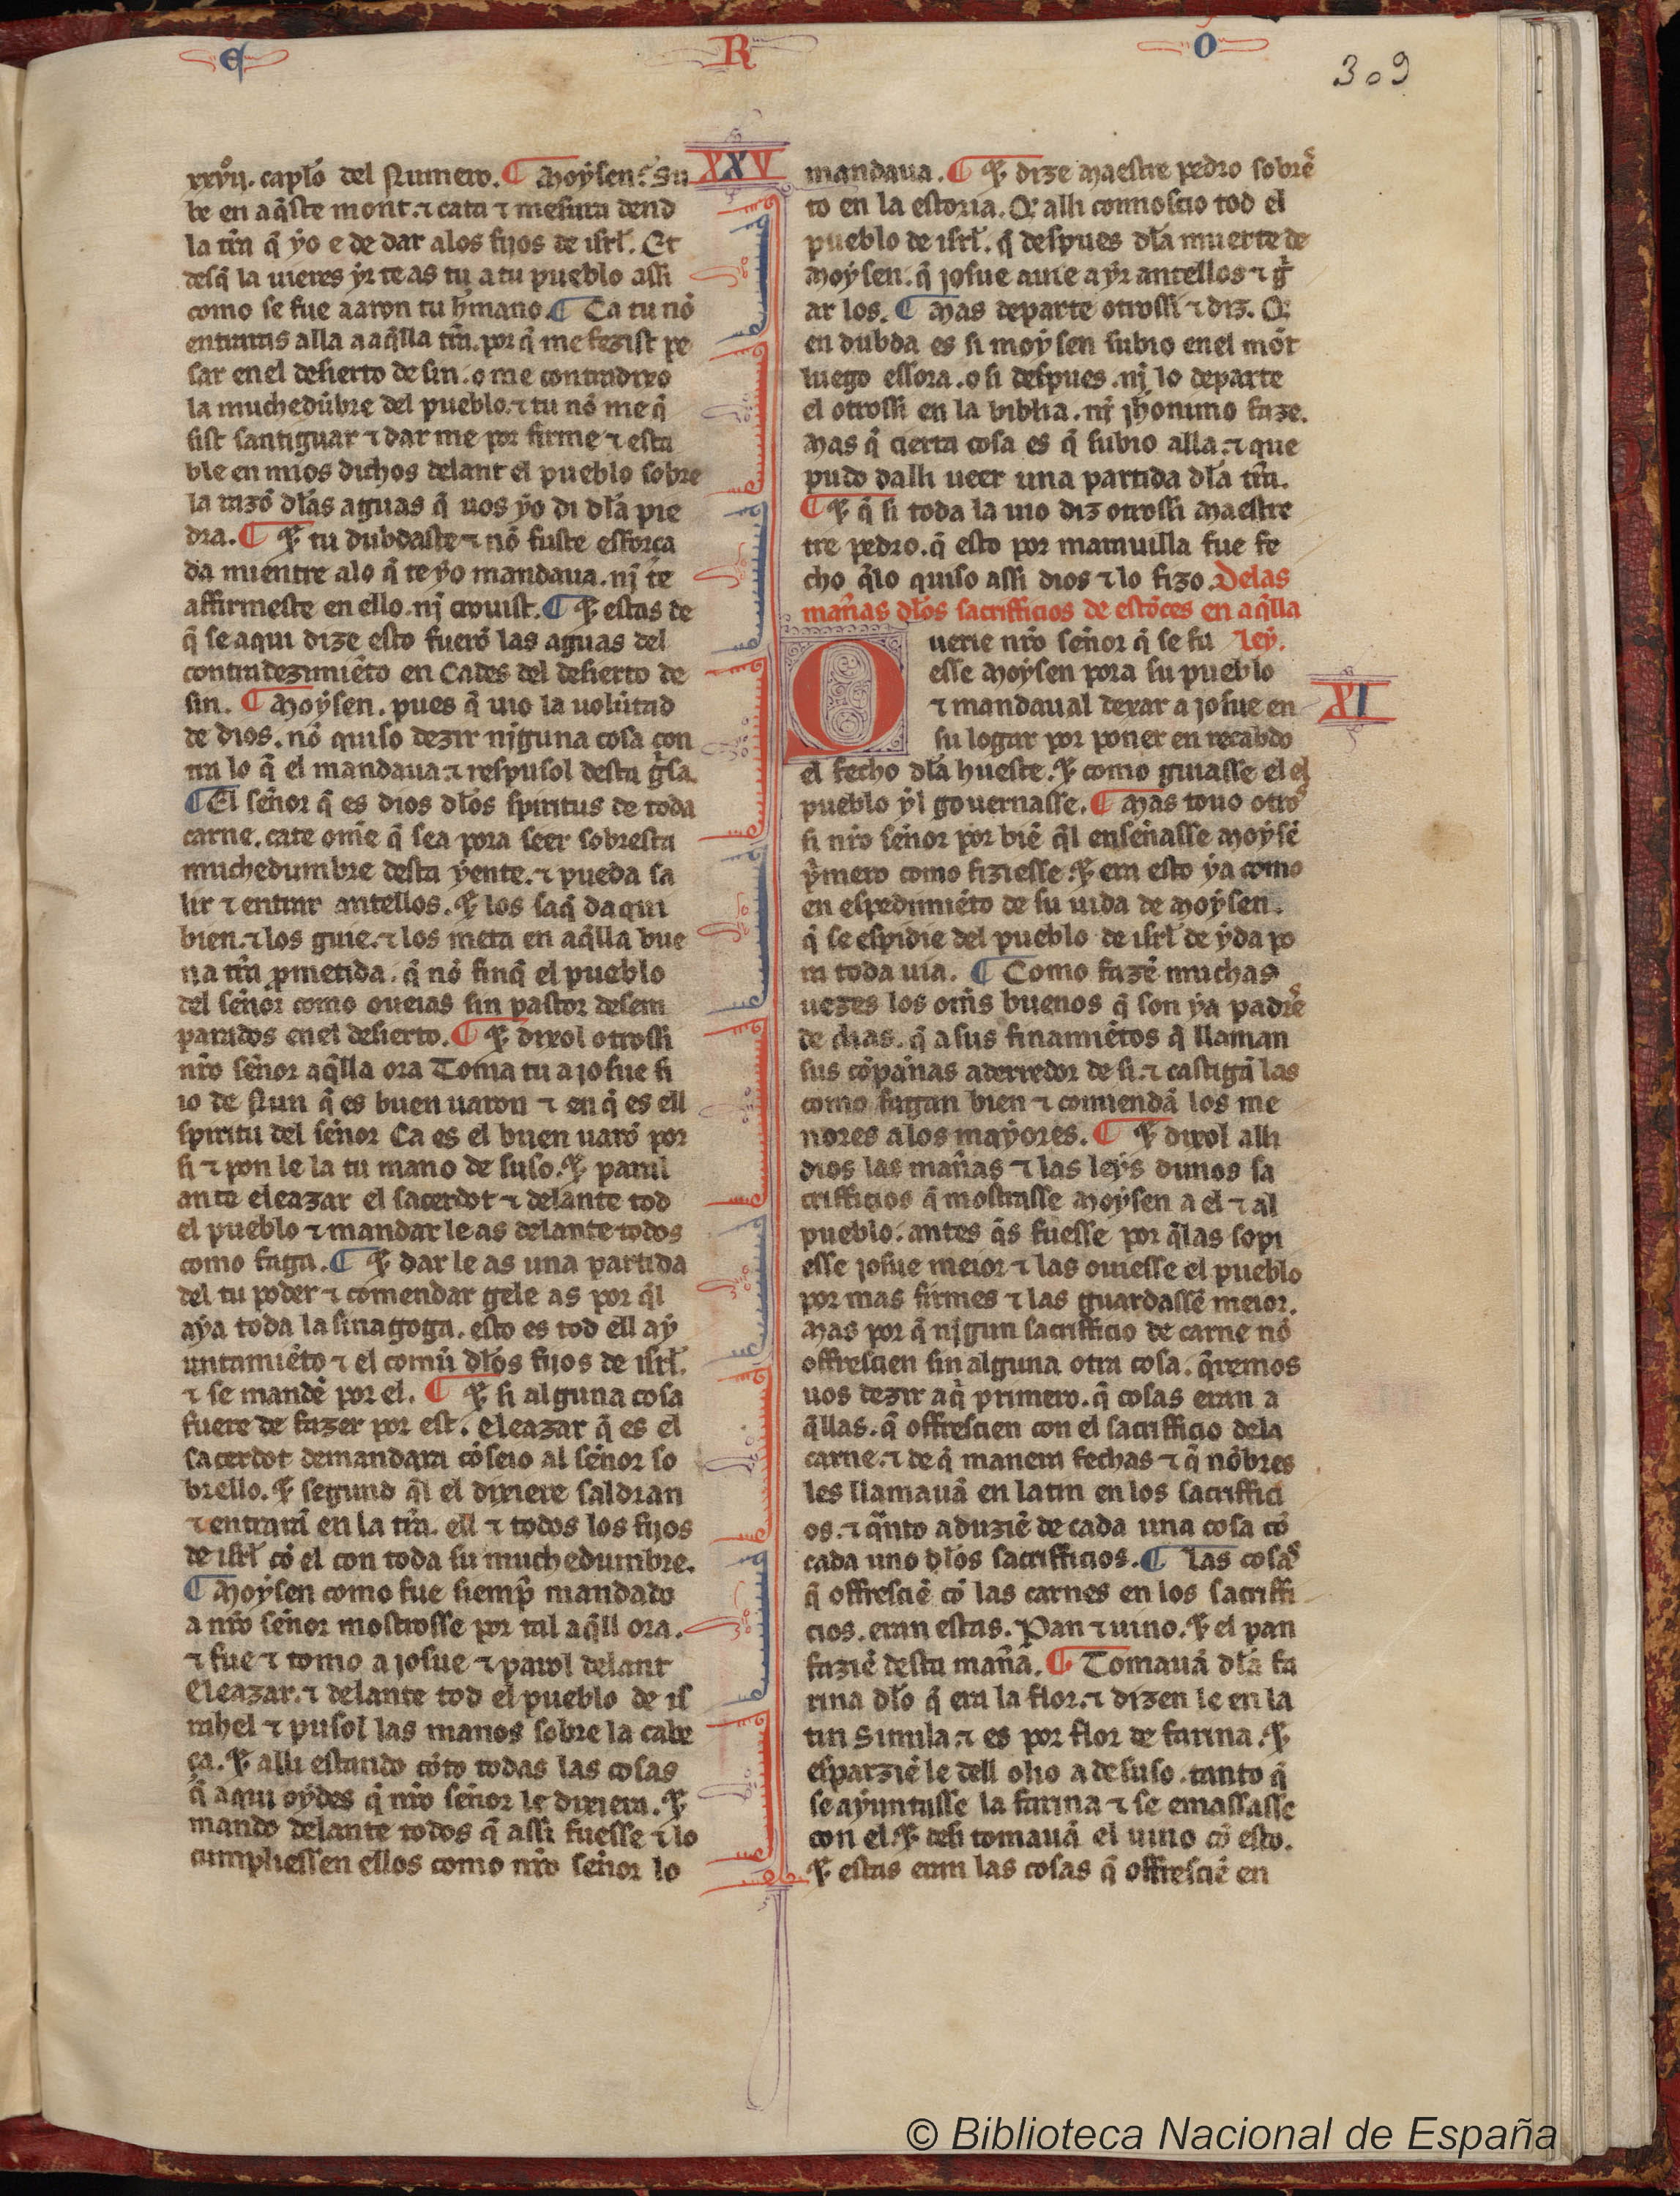 E R O
309
XXV
xxvijº. caplo del Numero. ¶ Moysen. Su
be en aq̃ste mont. ⁊ cata ⁊ mesura dend
la tr̃a q̃ yo e de dar alos fijos de isrl̃. Et
desq̃ la uieres yr te as tu a tu pueblo assi
como se fue aaron tu h̃mano. ¶ Ca tu nõ
entraras alla a aq̃lla tr̃a. por q̃ me fezist pe
sar enel desierto de sin. o me contradixo
la muchedũbre del pueblo. ⁊ tu nõ me q̃
sist santiguar ⁊ dar me por firme ⁊ esta
ble en mios dichos delant el pueblo sobre
la razõ dl̃as aguas q̃ uos yo di dl̃a pie
dra. ¶ Et tu dubdaste ⁊ nõ fuste esforça
da mientre alo q̃ te yo mandaua. nj̃ te
affirmeste en ello. nj̃ crouist. ¶ Et estas de
q̃ se aqui dize esto fuerõ las aguas del
contradezimiẽto en Cades del desierto de
sin. ¶ Moysen. pues q̃ uio la uolũtad
de dios. nõ quiso dezir njguna cosa con
tra lo q̃ el mandaua. ⁊ respusol desta g̃sa.
¶ El señor q̃ es dios dl̃os spiritus de toda
carne. cate om̃e q̃ sea pora seer sobresta
muchedumbre desta yente. ⁊ pueda sa
lir ⁊ entrar antellos. Et los saq̃ daqui
bien. ⁊ los guie. ⁊ los meta en aq̃lla bue
na tr̃a p̃metida. q̃ nõ finq̃ el pueblo
del señor como oueias sin pastor desem
parados enel desierto. ¶ Et dixol otrossi
nr̃o señor aq̃lla ora Toma tu a josue fi
io de Nun q̃ es buen uaron ⁊ en q̃ es ell
spiritu del señor Ca es el buen uarõ por
si ⁊ pon le la tu mano de suso. Et paral
ante eleazar el sacerdot ⁊ delante tod
el pueblo ⁊ mandar le as delante todos
como faga. ¶ Et dar le as una partida
del tu poder ⁊ comendar gele as por q̃l
aya toda la sinagoga. esto es tod ell ay
untamiẽto ⁊ el comũ dl̃os fijos de isrl̃.
⁊ se mandẽ por el. ¶ Et si alguna cosa
fuere de fazer por est. eleazar q̃ es el
sacerdot demandara cõseio al señor so
brello. Et segund q̃l el dixiere saldran
⁊ entrarã en la tr̃a. ell ⁊ todos los fijos
de isrl̃ cõ el con toda su muchedumbre.
¶ Moysen como fue siemp̃ mandado
a nr̃o señor mostrosse por tal aq̃ll ora.
⁊ fue ⁊ tomo a josue ⁊ parol delant
Eleazar. ⁊ delante tod el pueblo de is
rahel ⁊ pusol las manos sobre la cabe
ça. Et alli estando cõto todas las cosas
q̃ aqui oydes q̃ nr̃o señor le dixiera. Et
mando delante todos q̃ assi fuesse ⁊ lo
cumpliessen ellos como nr̃o señor lo
mandaua. ¶ Et dize Maestre pedro sobres
to en la estoria. Q̃ alli connoscio tod el
pueblo de isrl̃. q̃ despues dl̃a muerte de
Moysen. q̃ josue auie a yr antellos ⁊ g̃
ar los. ¶ Mas departe otrossi ⁊ diz. Q̃
en dubda es si moysen subio enel mõt
luego essora. o si despues. nj̃ lo departe
el otrossi en la biblia. nj̃ jh̃onimo faze.
Mas q̃ cierta cosa es q̃ subio alla. ⁊ que
pudo dalli ueer una partida dl̃a tr̃a.
¶ Et q̃ si toda la uio diz otrossi Maestre
tre pedro. q̃ esto por marauilla fue fe
cho q̃lo quiso assi dios ⁊ lo fizo. Delas
mañas dl̃os sacrifficios de estõces en aq̃lla
ley.
Querie nr̃o señor q̃ se fu
esse Moysen pora su pueblo
⁊ mandaual dexar a josue en
XI
su logar por poner en recabdo
el fecho dl̃a hueste. Et como guiasse el el
pueblo yl gouernasse. ¶ Mas touo otros
si nr̃o señor por biẽ q̃l enseñasse Moysẽ
p̃mero como fiziesse. Et era esto ya como
en espedimiẽto de su uida de Moysen.
q̃ se espidie del pueblo de isrl̃ de yda po
ra toda uia. ¶ Como fazẽ muchas
uezes los om̃s buenos q̃ son ya padres
de dias. q̃ a sus finamiẽtos q̃ llaman
sus cõpañas aderredor de si. ⁊ castigã las
como fagan bien ⁊ comiendã los me
nores alos mayores. ¶ Et dixol alli
dios las mañas ⁊ las leys dunos sa
crifficios q̃ mostrasse Moysen a el ⁊ al
pueblo. antes q̃s fuesse por q̃las sopi
esse josue meior ⁊ las ouiesse el pueblo
por mas firmes ⁊ las guardassẽ meior.
Mas por q̃ njgun sacrifficio de carne nõ
offrescien sin alguna otra cosa. q̃remos
uos dezir aq̃ primero. q̃ cosas eran a
q̃llas. q̃ offrescien con el sacrifficio dela
carne. ⁊ de q̃ manera fechas ⁊ q̃ nõbres
les llamauã en latin en los sacriffici
os. ⁊ q̃nto aduziẽ de cada una cosa cõ
cada uno dl̃os sacrifficios. ¶ Las cosas
q̃ offresciẽ cõ las carnes en los sacriffi
cios. eran estas. Pan ⁊ uino. Et el pan
faziẽ desta mañã. ¶ Tomauã dl̃a fa
rina dl̃o q̃ era la flor. ⁊ dizen le en la
tin Simila. ⁊ es por flor de farina. Et
esparziẽ le dell olio a desuso. tanto q̃
se ayuntasse la farina ⁊ se emassasse
con el. Et desi tomauã el uino cõ esto.
Et estas eran las cosas q̃ offresciẽ en
© Biblioteca Nacional de España